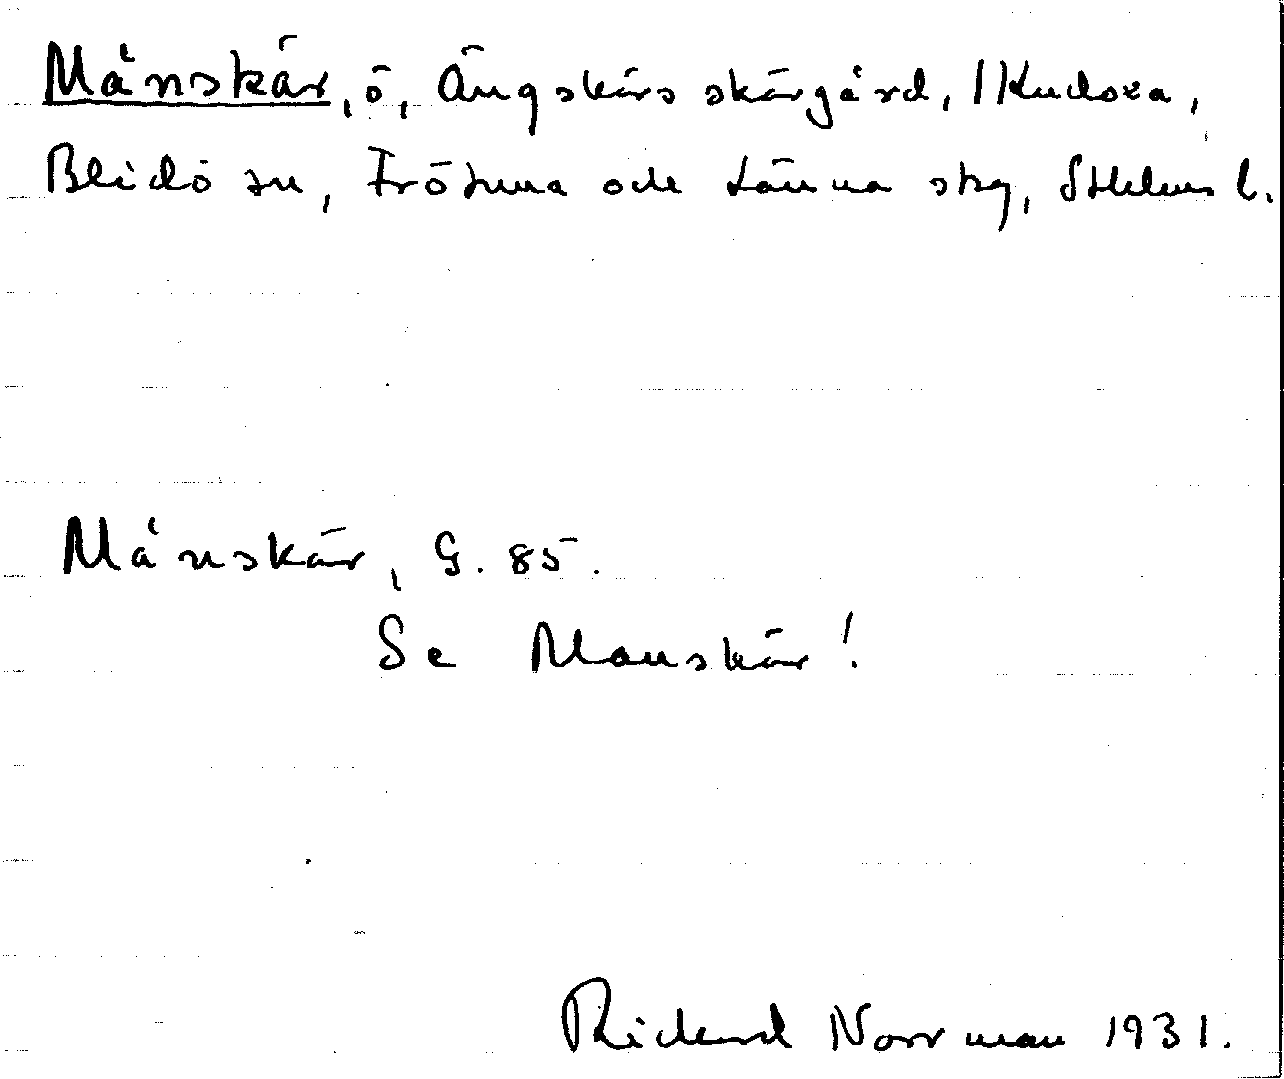 Månskär, ö, Ängskärs skärgård, Kudoxa,
Blidö sn, Frötuna och Länna skg, Sthlms l.
Månskär, G. 85.
Se Manskär!
Rickard Norrman 1931.